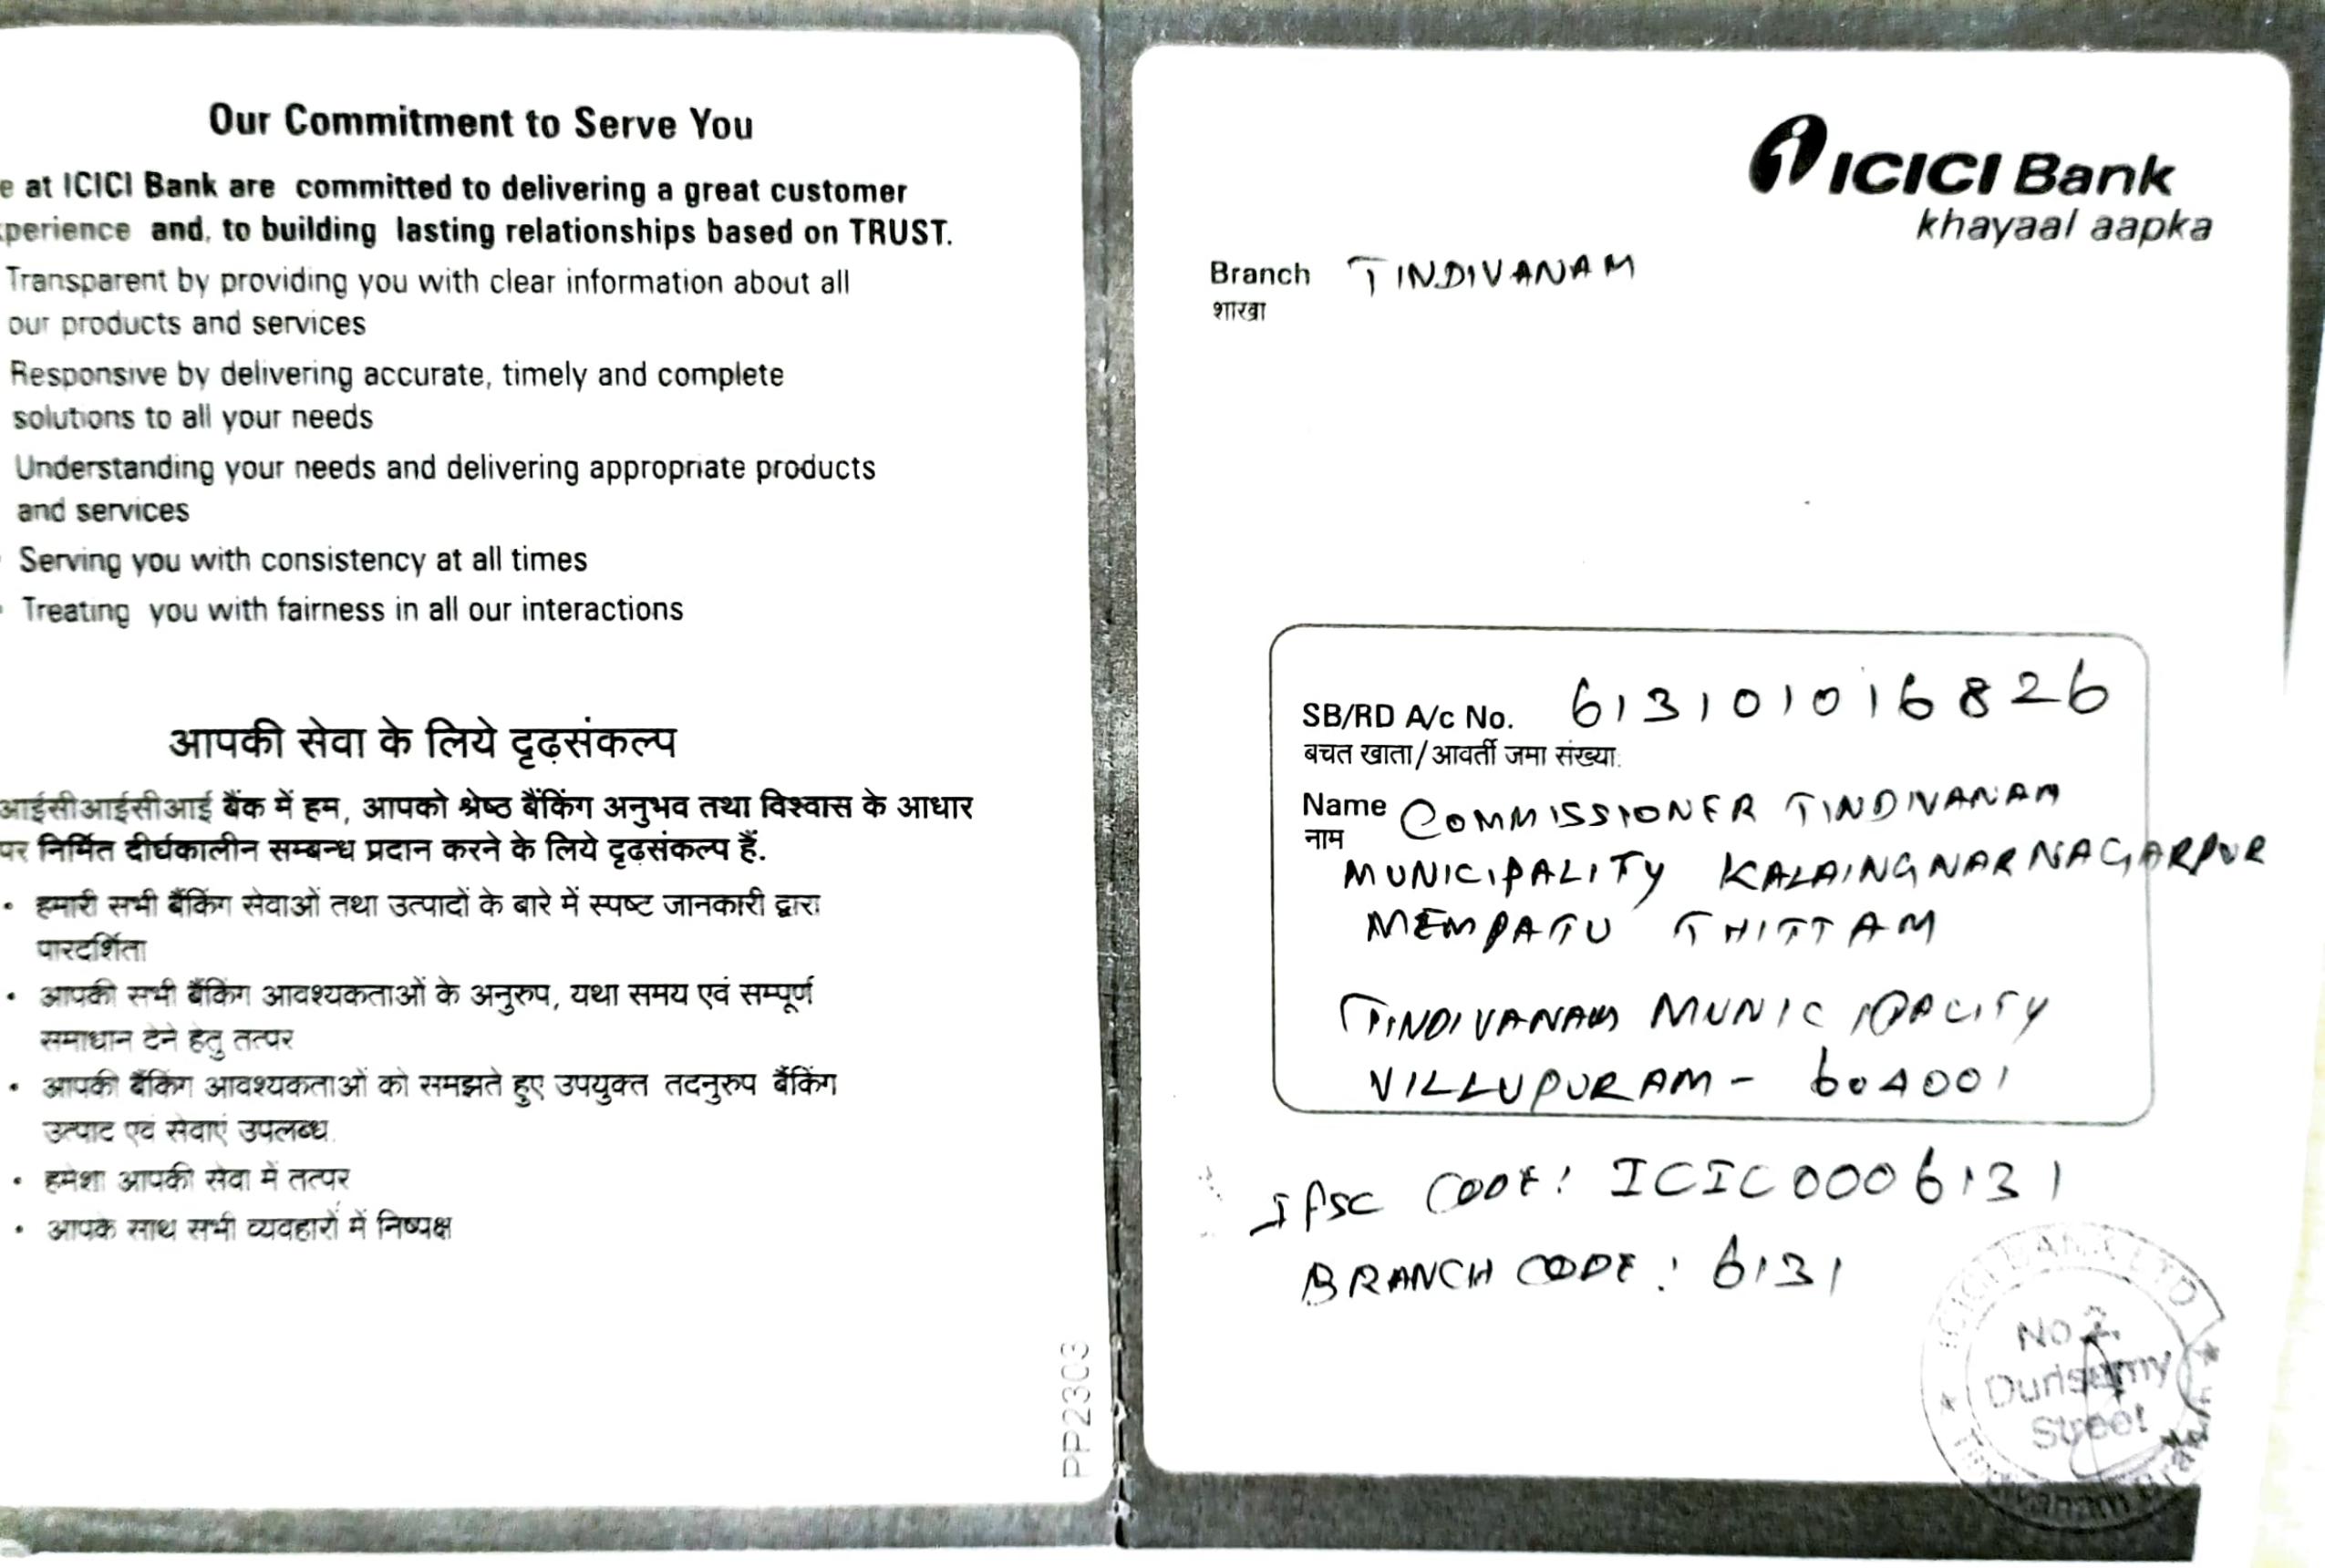 Our Commitment to Serve You
e at ICICI Bank are committed to delivering a great customer
perience and, to building lasting relationships based on TRUST.
Transparent by providing you with clear information about all
our products and services
Responsive by delivering accurate, timely and complete
solutions to all your needs
Understanding your needs and delivering appropriate products
and services
Serving you with consistency at all times
Treating you with fairness in all our interactions
आपकी सेवा के लिये दृढ़संकल्प
आईसीआईसीआई बैंक में हम, आपको श्रेष्ठ बैंकिंग अनुभव तथा विश्वास के आधार
पर निर्मित दीर्घकालीन सम्बन्ध प्रदान करने के लिये दृढ़संकल्प हैं.
• हमारी सभी बैंकिंग सेवाओं तथा उत्पादों के बारे में स्पष्ट जानकारी द्वारा
पारदर्शिता
• आपकी सभी बैंकिंग आवश्यकताओं के अनुरुप, यथा समय एवं सम्पूर्ण
समाधान देने हेतु तत्पर
• आपकी बैंकिंग आवश्यकताओं को समझते हुए उपयुक्त तदनुरुप बैंकिंग
उत्पाद एवं सेवाएं उपलब्ध
• हमेशा आपकी सेवा में तत्पर
• आपके साथ सभी व्यवहारों में निष्पक्ष
PP2303
ICICI Bank
khayaal aapka
Branch TINDIVANAM
शाखा
SB/RD A/c No. 613101016826
बचत खाता/आवर्ती जमा संख्या:
Name COMMISSIONER TINDIVANAM
नाम
MUNICIPALITY KALAINGNARNAGARPUR
MEMPATU THITTAM
TINDIVANAM MUNICIPALITY
VILLUPURAM - 604001
IFSC CODE: ICIC0006131
BRANCH CODE: 6131
ICICI BANK LTD
No 2,
Durisamy
Street
Tindivanam Branch